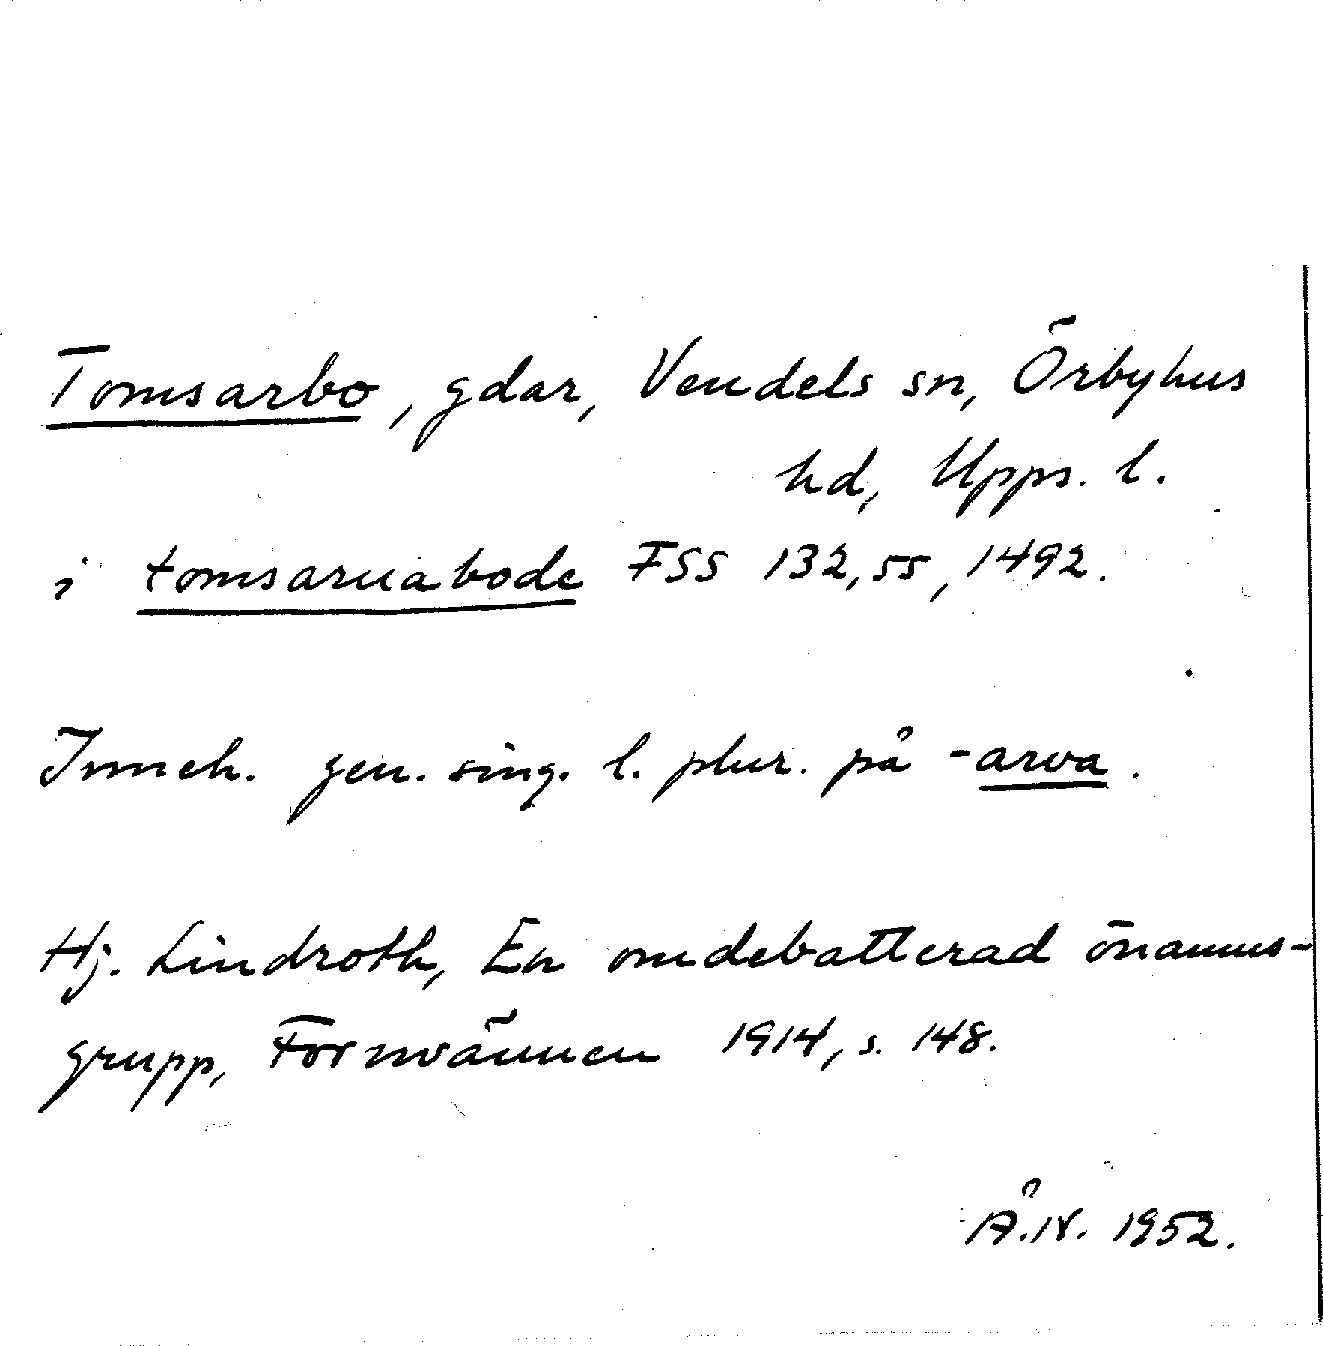 Tomsarbo, gdar, Vendels sn, Örbyhus
hd, Upps. l.
i tomsaruabode FSS 132,55, 1492.
Inneh. gen. sing. l. plur. på -arva.
Hj. Lindroth, En omdebatterad önamns-
grupp, Fornvännen 1914, s. 148.
Å.N. 1952.